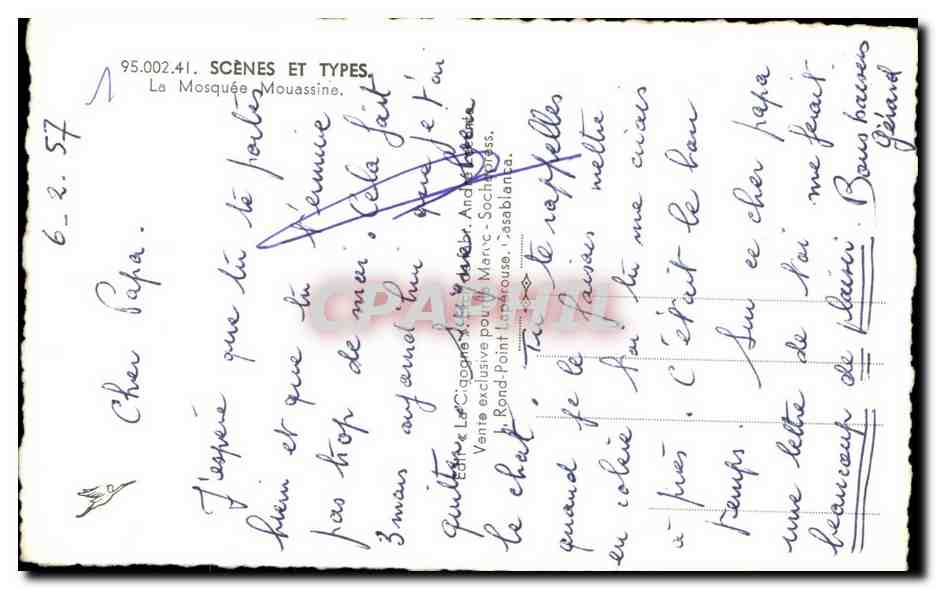 95.002.41. SCÈNES ET TYPES.
La Mosquée Mouassine.
1
6-2.57
Cher Papa.
J'espère que tu te portes
bien et que tu t'ennuie
pas trop de moi. Cela fait
3 mois aujourd'hui que je t'ai
quitter
le chat. Tu te rappelles
quand je le faisais mettre
en colère toi tu me criais
après. C'était le bon
temps. Sur ce cher papa
une lettre de toi me ferait
beaucoup de plaisir. Bons baisers
Gérard
Edit. « La Cigogne »
Vente exclusive pour le Maroc - Sochepress.
Rond-Point Lapérouse. Casablanca.
CPAPHIL